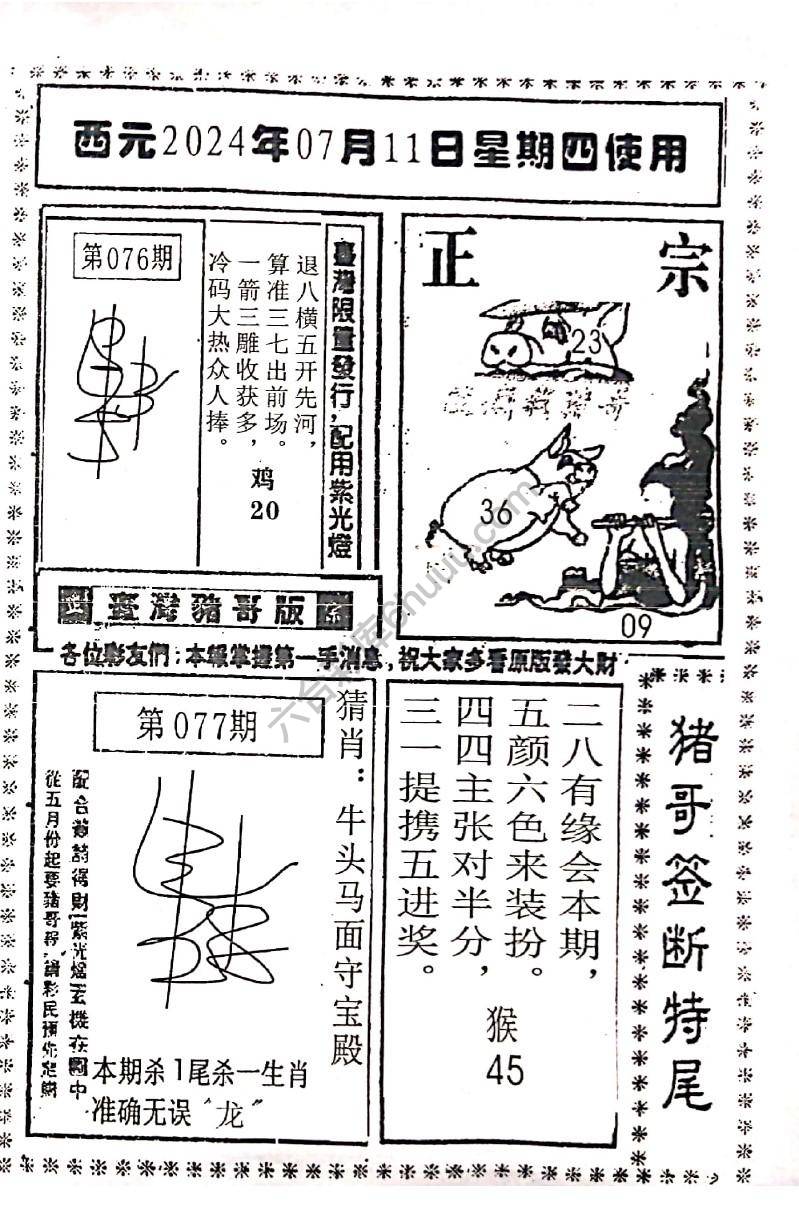 西元2024年07月11日星期四使用
第076期
退八横五开先河，
算准三七出前场。
一箭三雕收获多，
冷码大热众人捧。
鸡
20
臺灣限量發行，配用紫光燈
正宗
23
36
09
正 臺灣豬哥版 宗
各位彩友們：本報掌握第一手消息，祝大家多看原版發大財
第077期
猜肖：牛头马面守宝殿
從五月份起要豬哥報，請彩民預先定購
本期杀1尾杀一生肖
准确无误“龙”
二八有缘会本期，
五颜六色来装扮。
四四主张对半分，
三一提携五进奖。
猴
45
猪哥签断特尾